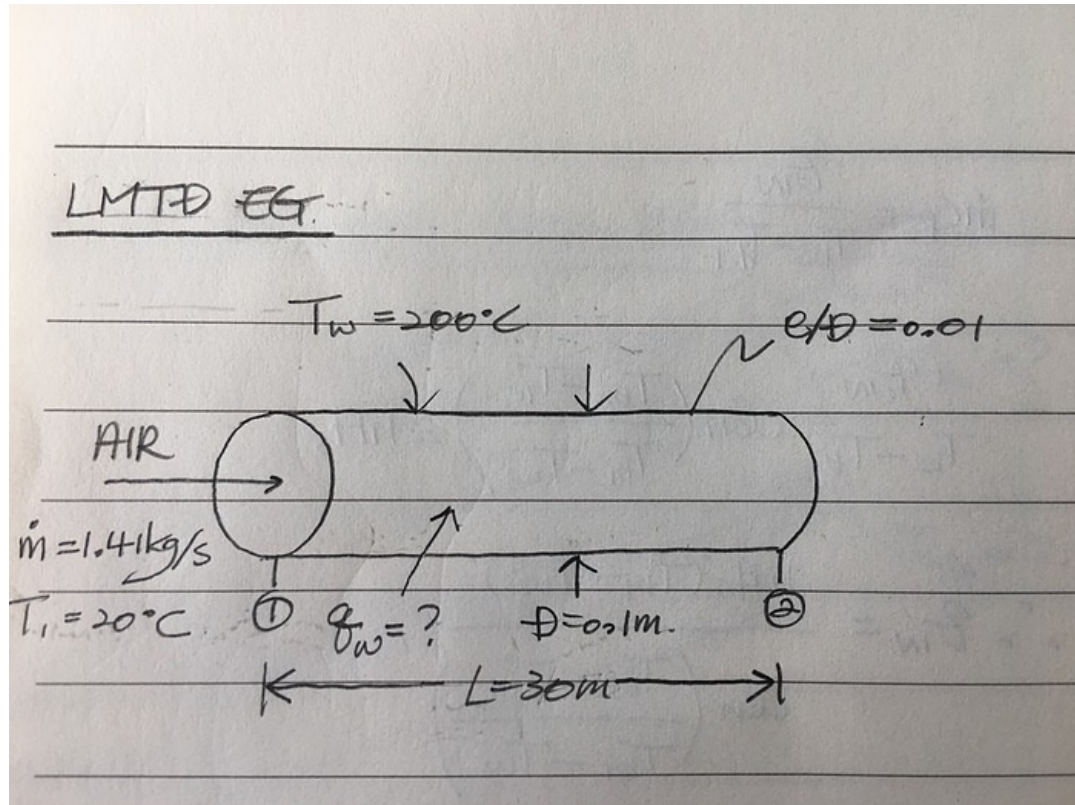 LMTD EG.
Tw = 200°C
e/D = 0.01
AIR
ṁ = 1.41kg/s
T₁ = 20°C
①
qw = ?
D = 0.1m.
②
L = 30m